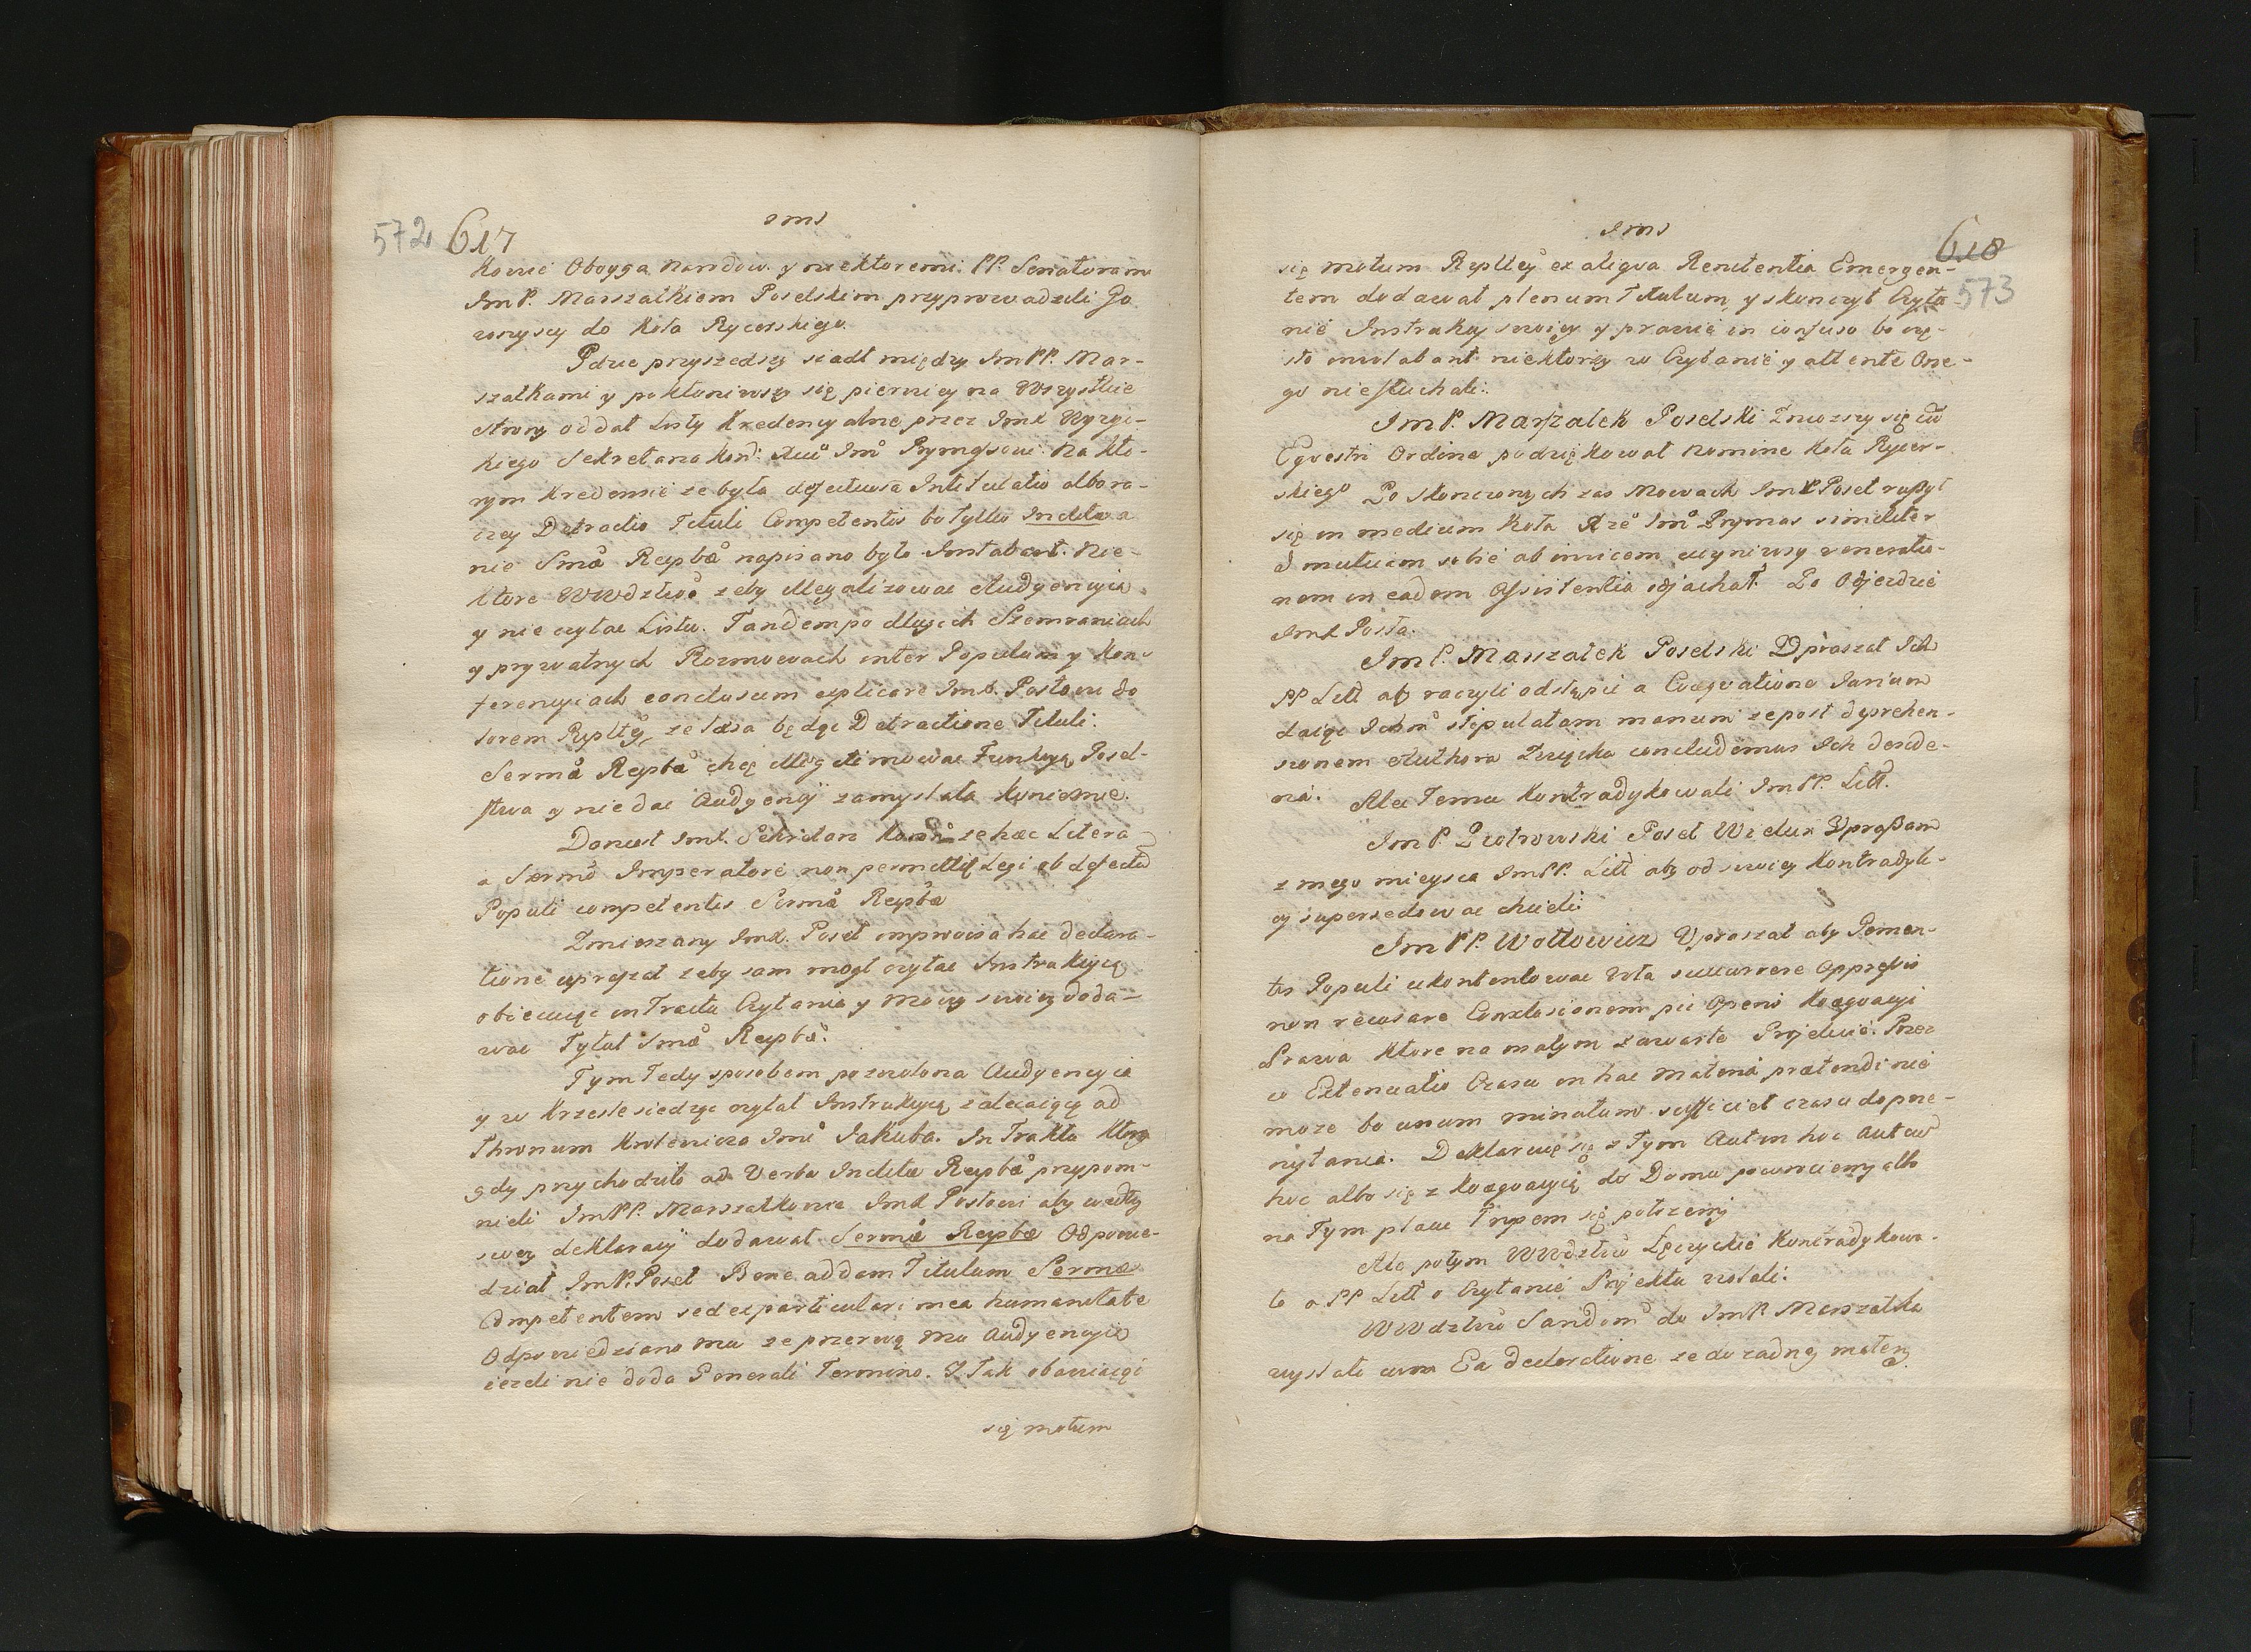 572 617
kowie Oboyga Narodow. y niektoremi. PP. Senatorami
Im P. Marszałkiem Poselskim przyprowadzili Go
wszyscy do Koła Rycerskiego.
Gdzie przyszedszy siadł między Im PP. Mar-
szałkami y pokłoniwszy się pierwiey na Wszystkie
strony oddał Listy Kredencyalne przez ImX Wyzyc-
kiego Sekretarza Kon: Im Prymasowi. Na kto-
rym Kredensie ze była defectuosa Intitulatio albo ra-
czey Detractio Tituli Competentis bo tylko Inclita a
nie Sma Reipbae napisano było Instabant. Nie-
ktore WWdztwa zeby illegalizowac Audyencyią
y nie czytac Listu. Tandem po długich Szemraniach
y prywatnych Rozmowach inter Populum y Kon-
ferencyiach conclusum explicare ImX. Posłowi do-
lorem Rzpltey, ze laesa będąc Detractione Tituli.
Sermae Reipbae chcę illegitimowac Funkcyą Posel-
stwa y nie dac Audyencyi zamyslała koniecznie.
Donust ImX. Sekretarz Koron ze haec Litera
a Sermo Imperatore non permittit Legi ob defectu
Populi competentis Sermae Reipbae
Zmieszany ImX. Poseł improvisa hac declara-
tione upraszał zeby sam mogł czytac Instrukcyią
obiecuiąc in Tractu Czytania y Mowy swoiey doda-
wac Tytuł Smae Reipbae.
Tym Tedy sposobem pozwolona Audyencyia
y w Krzesle siedząc czytał Instrukcyą zalecaiącą ad
Thronum Krolewicza Imci Jakuba. In Traktu ktory
gdy przychodziło ad Verba Inclitae Reipbae przypom-
nieli Im PP. Marszałkowie ImX Posłowi aby według
swey deklaracyi dodawał Sermae Reipbae Odpowie-
dział Im P. Poseł Bene addam Titulum Sermae
Competentem sed ex particulari mea humanitate
Odpowiedziano mu ze przerwą mu Audyencyią
iezeli nie doda Generali Termino. I Tak obawiaiąc
się motum
618
573
się motum Rzpltey ex aliqva Renitentia Emergen-
tem dodawał plenum Titulum, y skonczył Czyta
nie Instrukcyi swoiey y prawie in confuso bo czę-
sto niektorzy w Czytanie y attente One-
go nie słuchali.
Im P. Marszałek Poselski Zniozszy się cu
Eqvestri Ordine podziękował Nomine Koła Rycer-
skiego Po skonczonych zas Mowach ImX Poseł ruszył
się in medium Koła Xze Im Prymas similiter
I mutuam sobie ab invicem uczyniwszy veneratio-
nem in eadem Assistentia odjachał. Po Odjezdzie
ImX Posła.
Im P. Marszałek Poselski Upraszał Ich
PP Litt aby raczyli odstąpić a Coaeqvatione Jurium
daiąc Ichm stipulatam manum ze post deprehen-
sionem Authora Zwycka concludemus Ich deside-
ria. Ale Temu kontradykowali Im PP. Litt.
Im P. Piotrowski Poseł Wielun Upraszam
z mego mieysca Im PP. Litt aby od swoiey Kontradyk-
cyi supersedowac chcieli
Im PP. Wołłowicz Upraszał aby Gemen-
tis Populi ukontentowac Vota succurrere Oppressis
non recusare Conclusionem pii Operis Koaeqvacyi
Prawa ktore na małym zawarte Projekcie. Przez
co Extenuatio Czasu in hac materia praetendi nie
moze bo unum minutum sufficiet czasu do prze-
czytania. Deklaruię się z Tym Aut in hoc aut cu
hoc albo się z Koaeqvacyią do Domu powrociemy albo
na Tym placu Trupem się położemy
Ale potym WWdztwo Łęczyckie kontradykowa-
ło a PP Litt o Czytanie Projektu wołali.
WWdztwo Sandom do Im P. Marszałka
wysłało cum Ea declaratione ze do zadney matery